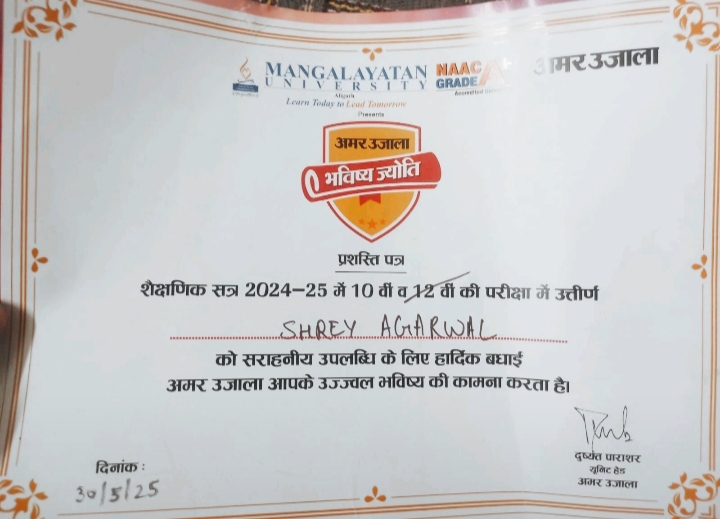 MANGALAYATAN
UNIVERSITY
Aligarh
Learn Today to Lead Tomorrow
NAAC
GRADE A+
Accredited
अमर उजाला
Presents
अमर उजाला
भविष्य ज्योति
प्रशस्ति पत्र
शैक्षणिक सत्र 2024-25 में 10 वीं व 12 वीं की परीक्षा में उत्तीर्ण
SHREY AGARWAL
को सराहनीय उपलब्धि के लिए हार्दिक बधाई
अमर उजाला आपके उज्ज्वल भविष्य की कामना करता है।
दुष्यंत पाराशर
यूनिट हेड
अमर उजाला
दिनांक :
30/5/25